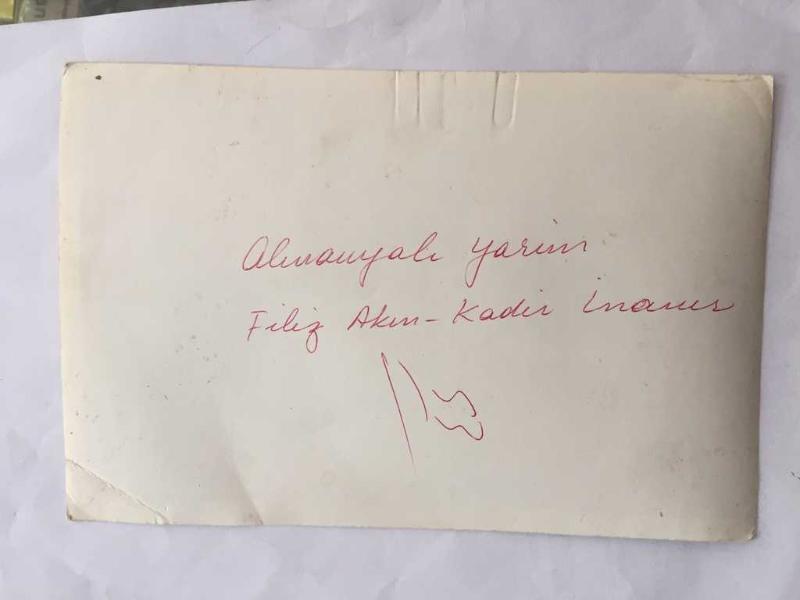 Almanyalı Yarim
Filiz Akın - Kadir İnanır